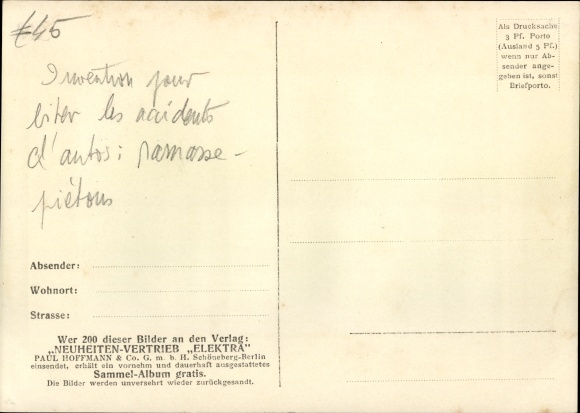 €45
Als Drucksache
3 Pf. Porto
(Ausland 5 Pf.)
wenn nur Ab-
sender ange-
geben ist, sonst
Briefporto.
Invention pour
éviter les accidents
d'autos: ramasse-
piétons
Absender:
Wohnort:
Strasse:
Wer 200 dieser Bilder an den Verlag:
„NEUHEITEN-VERTRIEB „ELEKTRA"
PAUL HOFFMANN & Co. G. m. b. H. Schöneberg-Berlin
einsendet, erhält ein vornehm und dauerhaft ausgestattetes
Sammel-Album gratis.
Die Bilder werden unversehrt wieder zurückgesandt.